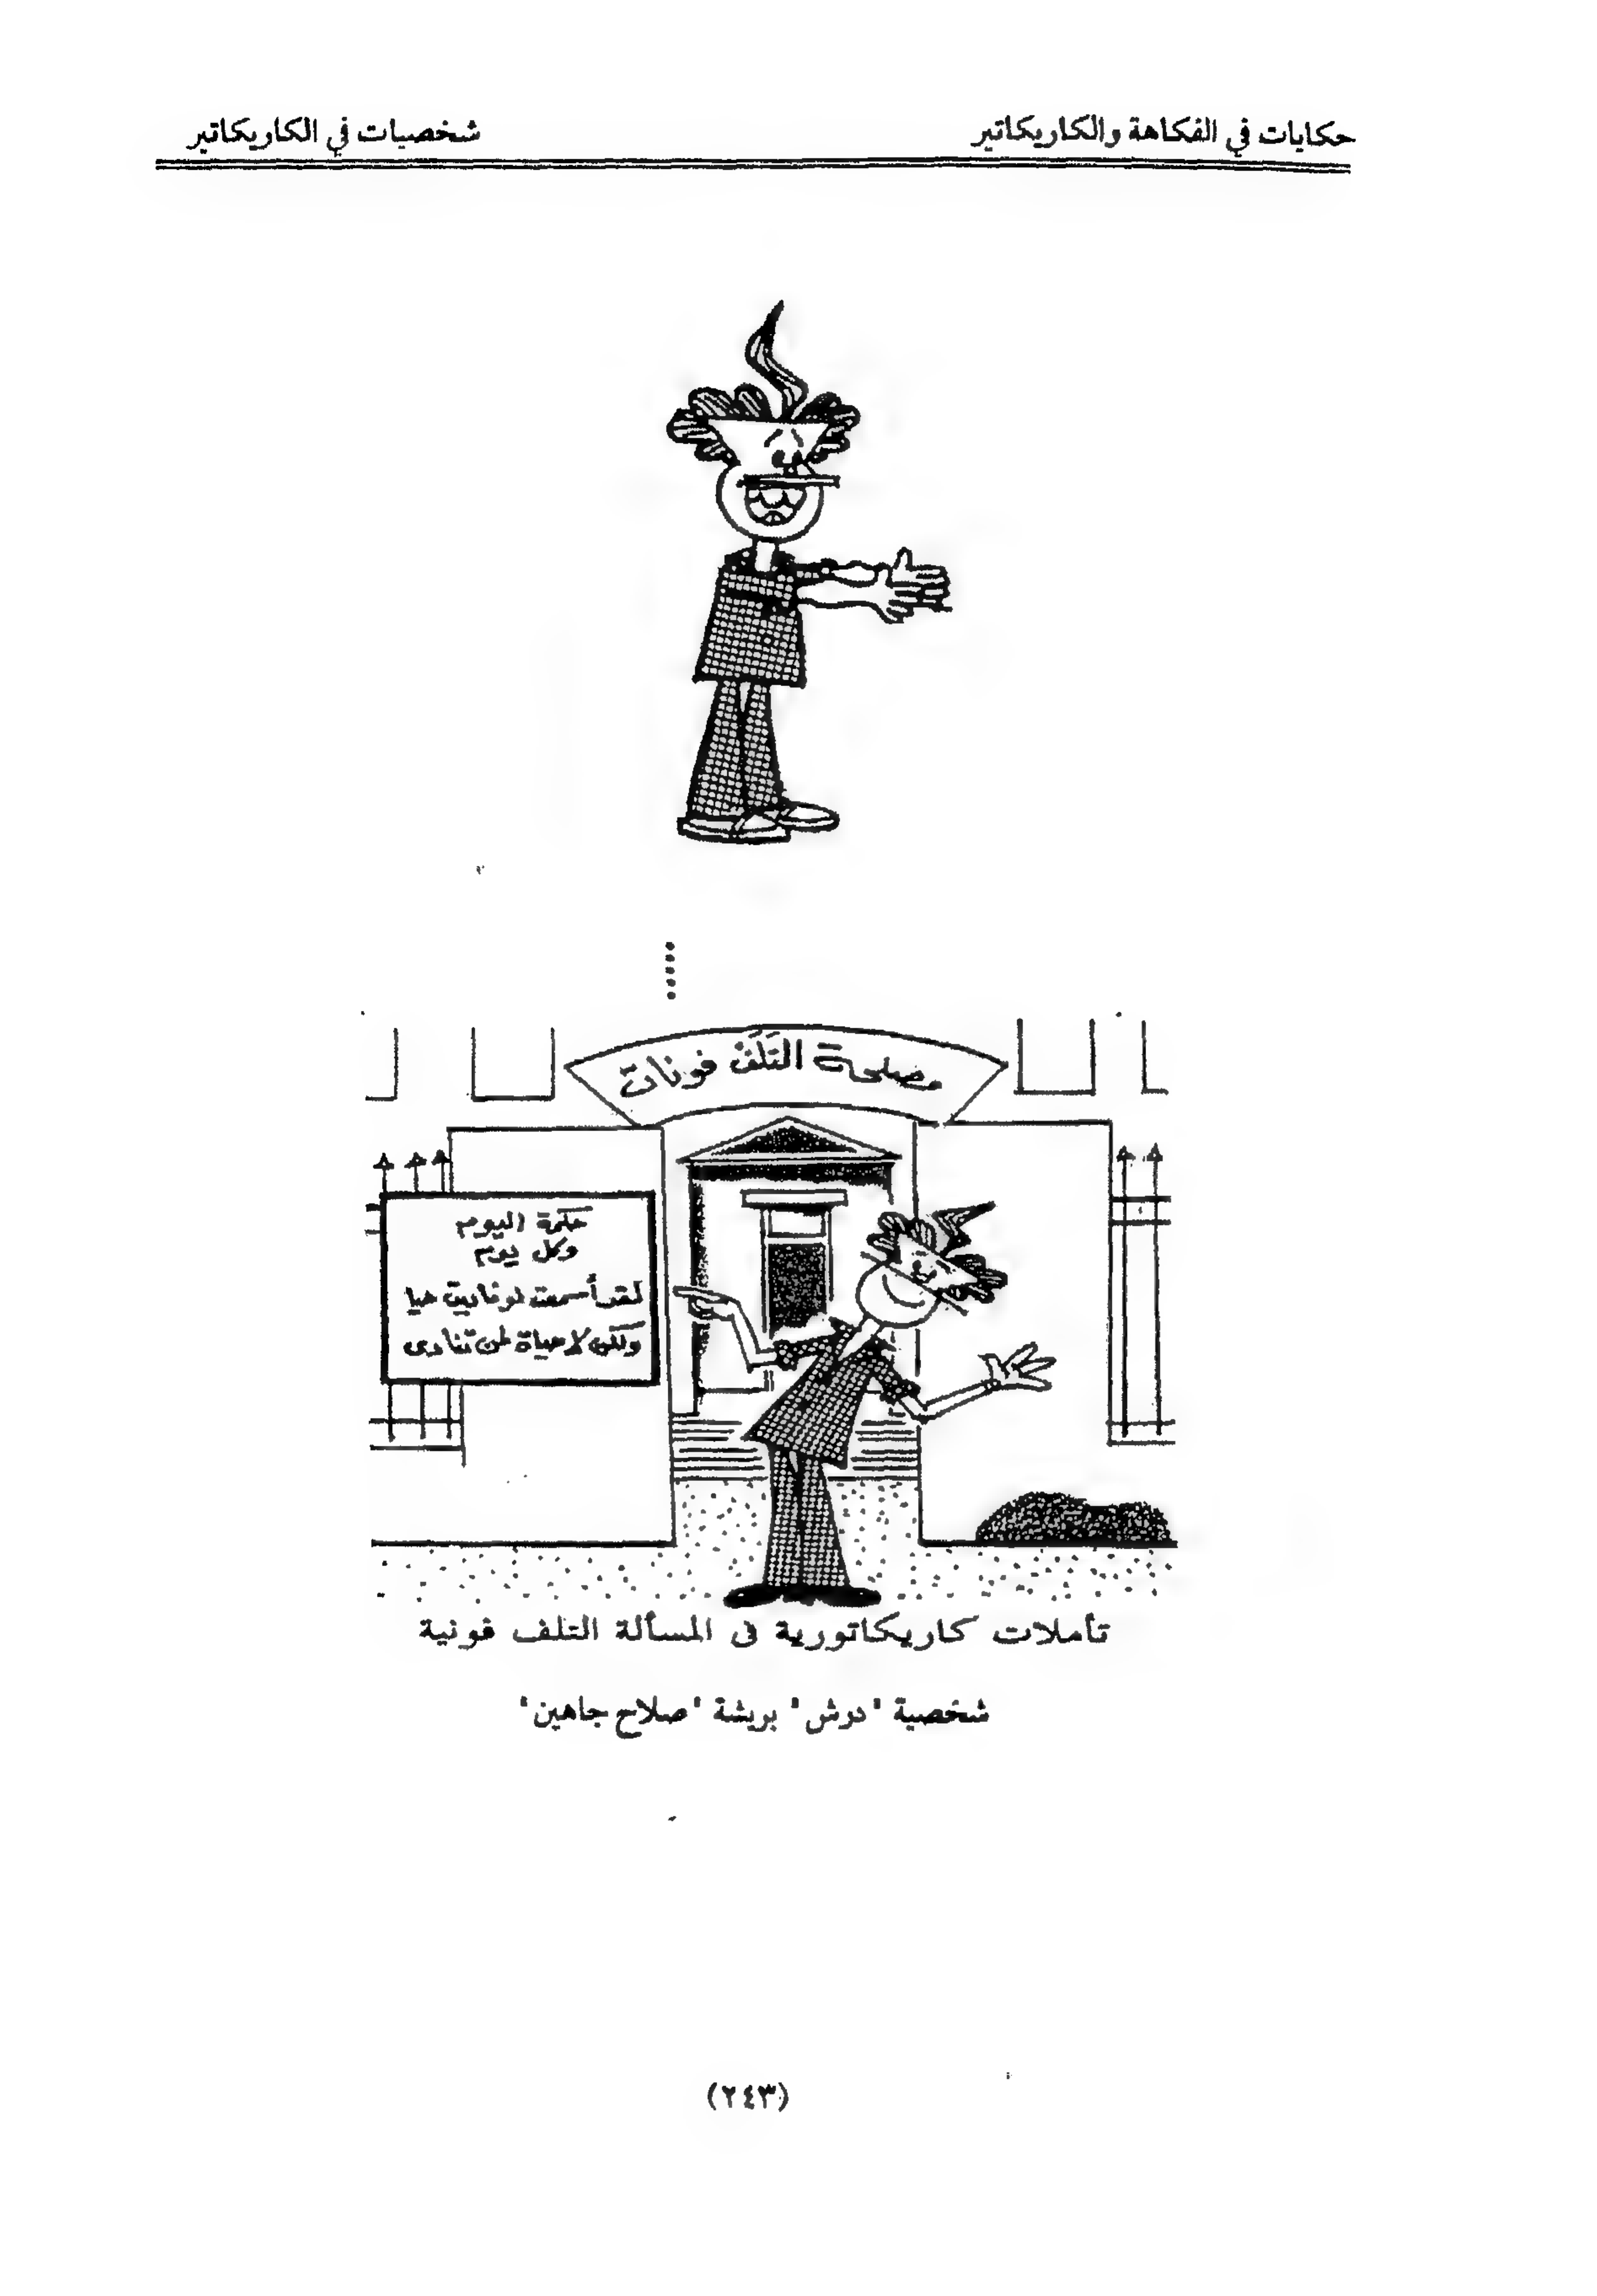 حكايات في الفكاهة والكاريكاتير
شخصيات في الكاريكاتير
مصلحة التلف فونات
حكمة اليوم
وكل يوم
لقد أسمعت لو ناديت حيا
ولكن لا حياة لمن تنادى
تأملات كاريكاتورية فى المسألة التلف فونية
شخصية "درش" بريشة "صلاح جاهين"
(٢٤٣)